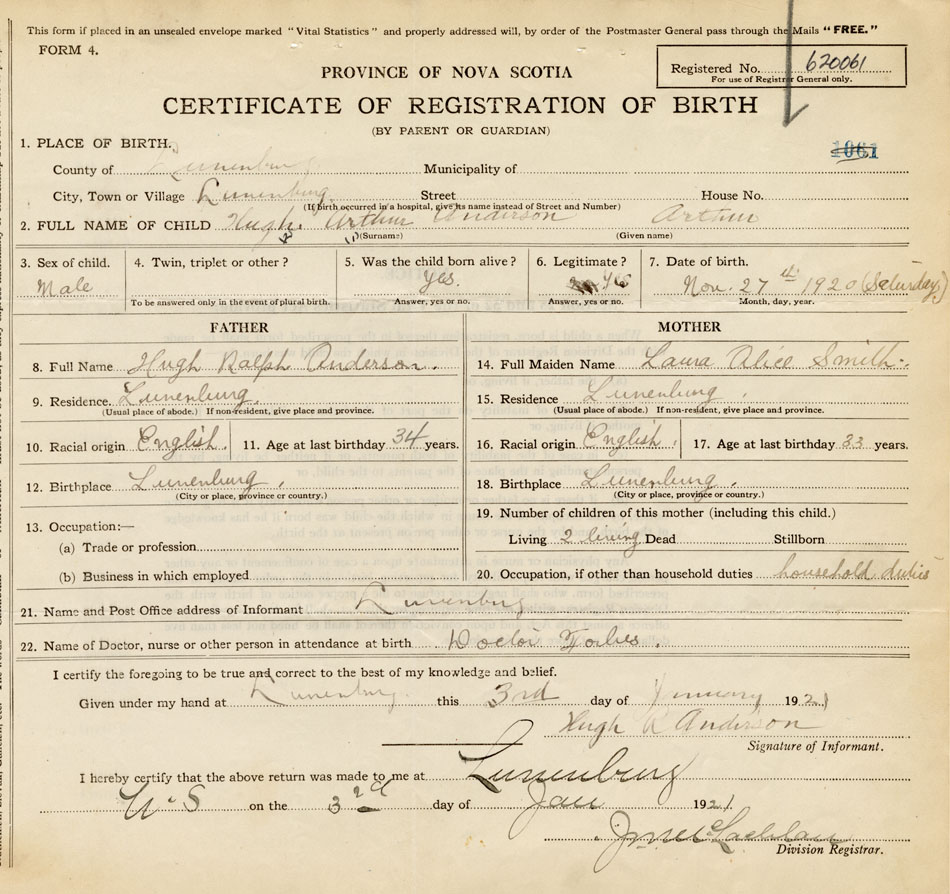 This form if placed in an unsealed envelope marked "Vital Statistics" and properly addressed will, by order of the Postmaster General pass through the Mails "FREE."
FORM 4.
Registered No. 620061
For use of Registrar General only.
PROVINCE OF NOVA SCOTIA
CERTIFICATE OF REGISTRATION OF BIRTH
(BY PARENT OR GUARDIAN)
1061
1. PLACE OF BIRTH.
County of Lunenburg Municipality of
City, Town or Village Lunenburg Street House No.
(If birth occurred in a hospital, give its name instead of Street and Number)
2. FULL NAME OF CHILD Hugh Arthur Anderson Arthur
(Surname) (Given name)
3. Sex of child. 4. Twin, triplet or other? 5. Was the child born alive? 6. Legitimate? 7. Date of birth.
Male Yes. Yes Nov. 27th 1920 (Saturday)
To be answered only in the event of plural birth. Answer, yes or no. Answer, yes or no. Month, day, year.
FATHER MOTHER
8. Full Name Hugh Ralph Anderson. 14. Full Maiden Name Laura Alice Smith.
9. Residence. Lunenburg. 15. Residence Lunenburg.
(Usual place of abode.) If non-resident, give place and province. (Usual place of abode.) If non-resident, give place and province.
10. Racial origin English. 11. Age at last birthday 34 years. 16. Racial origin English. 17. Age at last birthday 33 years.
12. Birthplace Lunenburg. 18. Birthplace Lunenburg.
(City or place, province or country.) (City or place, province or country.)
13. Occupation:— 19. Number of children of this mother (including this child.)
(a) Trade or profession Living 2 living Dead Stillborn
(b) Business in which employed 20. Occupation, if other than household duties household duties
21. Name and Post Office address of Informant Lunenburg
22. Name of Doctor, nurse or other person in attendance at birth Doctor Forbes.
I certify the foregoing to be true and correct to the best of my knowledge and belief.
Given under my hand at Lunenburg. this 3rd day of January 1921
Hugh R Anderson
Signature of Informant.
I hereby certify that the above return was made to me at Lunenburg
N S on the 3rd day of Jan 1921.
Division Registrar.